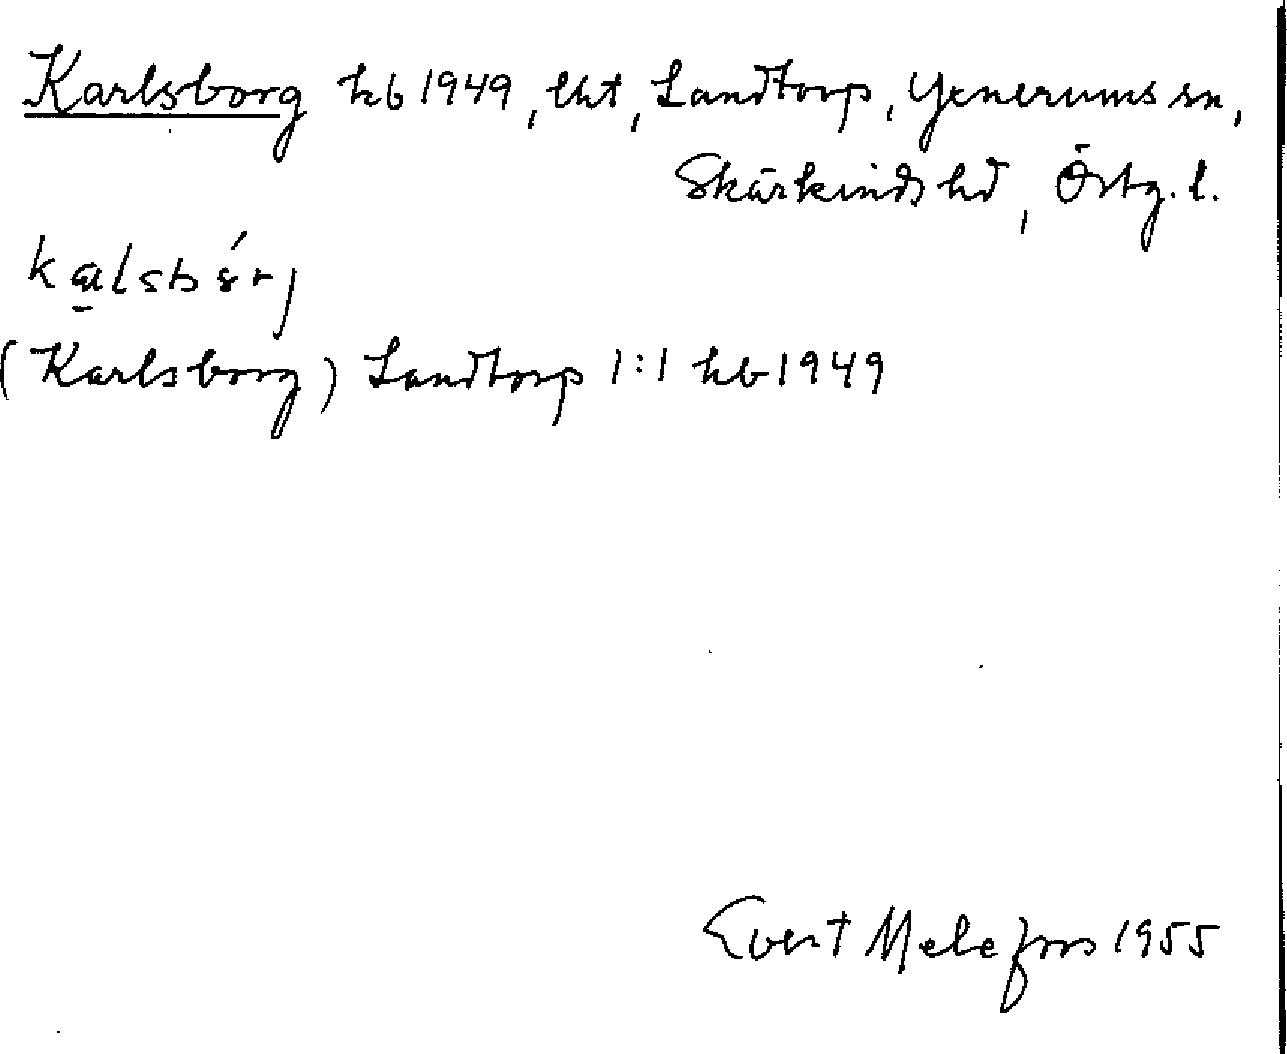 Karlsborg hb 1949, lht, Landtorp, Yxnerums sn,
Skärkinds hd, Östg. l.
(Karlsborg) Landtorp 1:1 hb 1949
Evert Melefors 1955